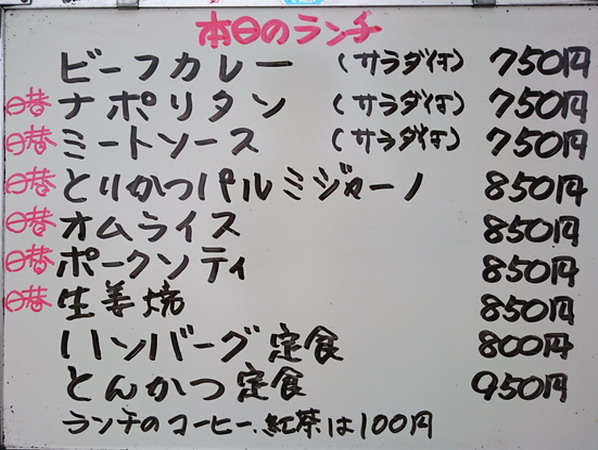 本日のランチ
ビーフカレー (サラダ付) 750円
日替 ナポリタン (サラダ付) 750円
日替 ミートソース (サラダ付) 750円
日替 とりかつパルミジャーノ 850円
日替 オムライス 850円
日替 ポークソティ 850円
日替 生姜焼 850円
ハンバーグ定食 800円
とんかつ定食 950円
ランチのコーヒー、紅茶は100円